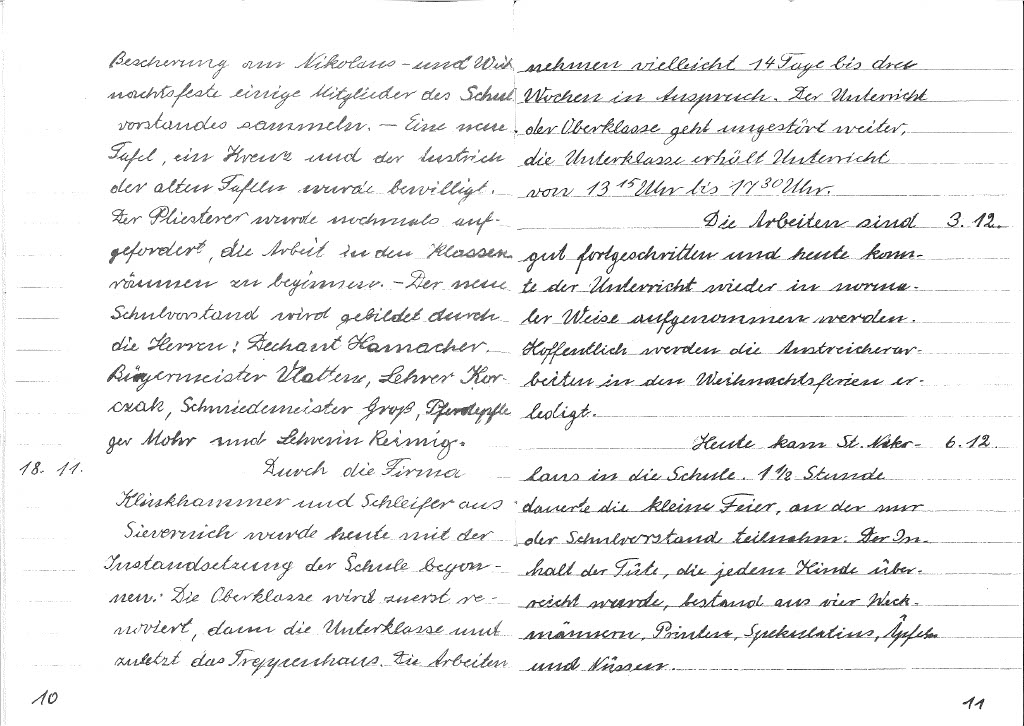 Bescherung am Nikolaus- und Weih
nachtsfeste einige Mitglieder des Schul
vorstandes sammeln. — Eine neue
Tafel, ein Kreuz und der Anstrich
der alten Tafeln wurde bewilligt.
Der Pliesterer wurde nochmals auf-
gefordert, die Arbeit in den Klassen
räumen zu beginnen. — Der neue
Schulvorstand wird gebildet durch
die Herren: Dechant Hamacher.
Bürgermeister Vlatten, Lehrer Kor-
czak, Schmiedemeister Groß, Pferdepfle
ger Mohr und Lehrerin Reinig.
18. 11. Durch die Firma
Klinkhammer und Schleifer aus
Sievernich wurde heute mit der
Instandsetzung der Schule begon-
nen. Die Oberklasse wird zuerst re-
noviert, dann die Unterklasse und
zuletzt das Treppenhaus. Die Arbeiten
10
nehmen vielleicht 14 Tage bis drei
Wochen in Anspruch. Der Unterricht
der Oberklasse geht ungestört weiter,
die Unterklasse erhält Unterricht
von 13 15 Uhr bis 17 30 Uhr.
Die Arbeiten sind 3. 12.
gut fortgeschritten und heute konn-
te der Unterricht wieder in norma-
ler Weise aufgenommen werden.
Hoffentlich werden die Anstreicherar-
beiten in den Weihnachtsferien er-
ledigt.
Heute kam St. Niko- 6. 12.
laus in die Schule. 1 1/2 Stunde
dauerte die kleine Feier, an der nur
der Schulvorstand teilnahm. Der In-
halt der Tüte, die jedem Kinde über-
reicht wurde, bestand aus vier Weck-
männern, Printen, Spekulatius, Äpfeln
und Nüssen.
11